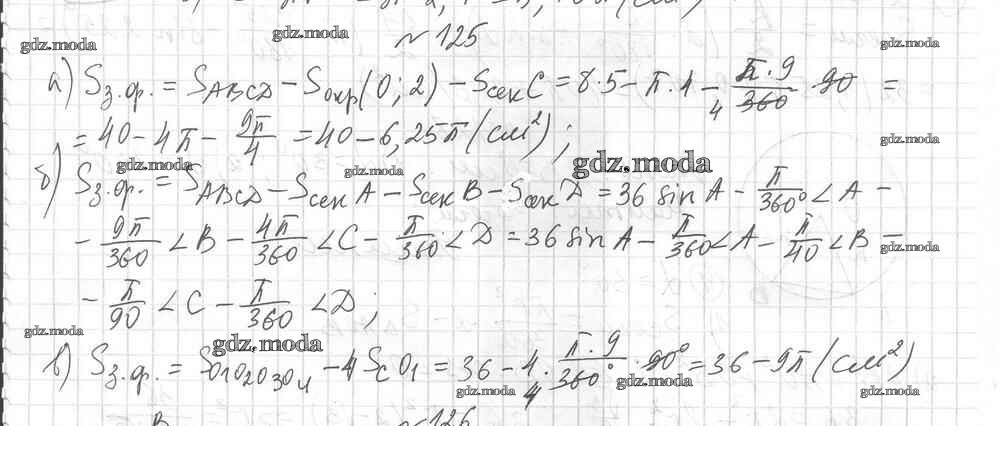 № 125
gdz.moda gdz.moda gdz.moda
а) Sз.ф. = SABCD - Sокр(0; 2) - SсекC = 8·5 - π·4 - π·9/360 · 90 =
gdz.moda
= 40 - 4π - 9π/4 = 40 - 6,25π (см²);
gdz.moda
gdz.moda gdz.moda gdz.moda
б) Sз.ф. = SABCD - SсекA - SсекB - SсекD = 36 sin A - π/360° ∠A -
- 9π/360 ∠B - 4π/360 ∠C - π/360 ∠D = 36 sin A - π/360 ∠A - π/40 ∠B -
gdz.moda
- π/90 ∠C - π/360 ∠D;
gdz.moda gdz.moda
в) Sз.ф. = SO1O2O3O4 - 4ScO1 = 36 - 4 · π·9/360° · 90° = 36 - 9π (см²)
gdz.moda gdz.moda gdz.moda
№ 126